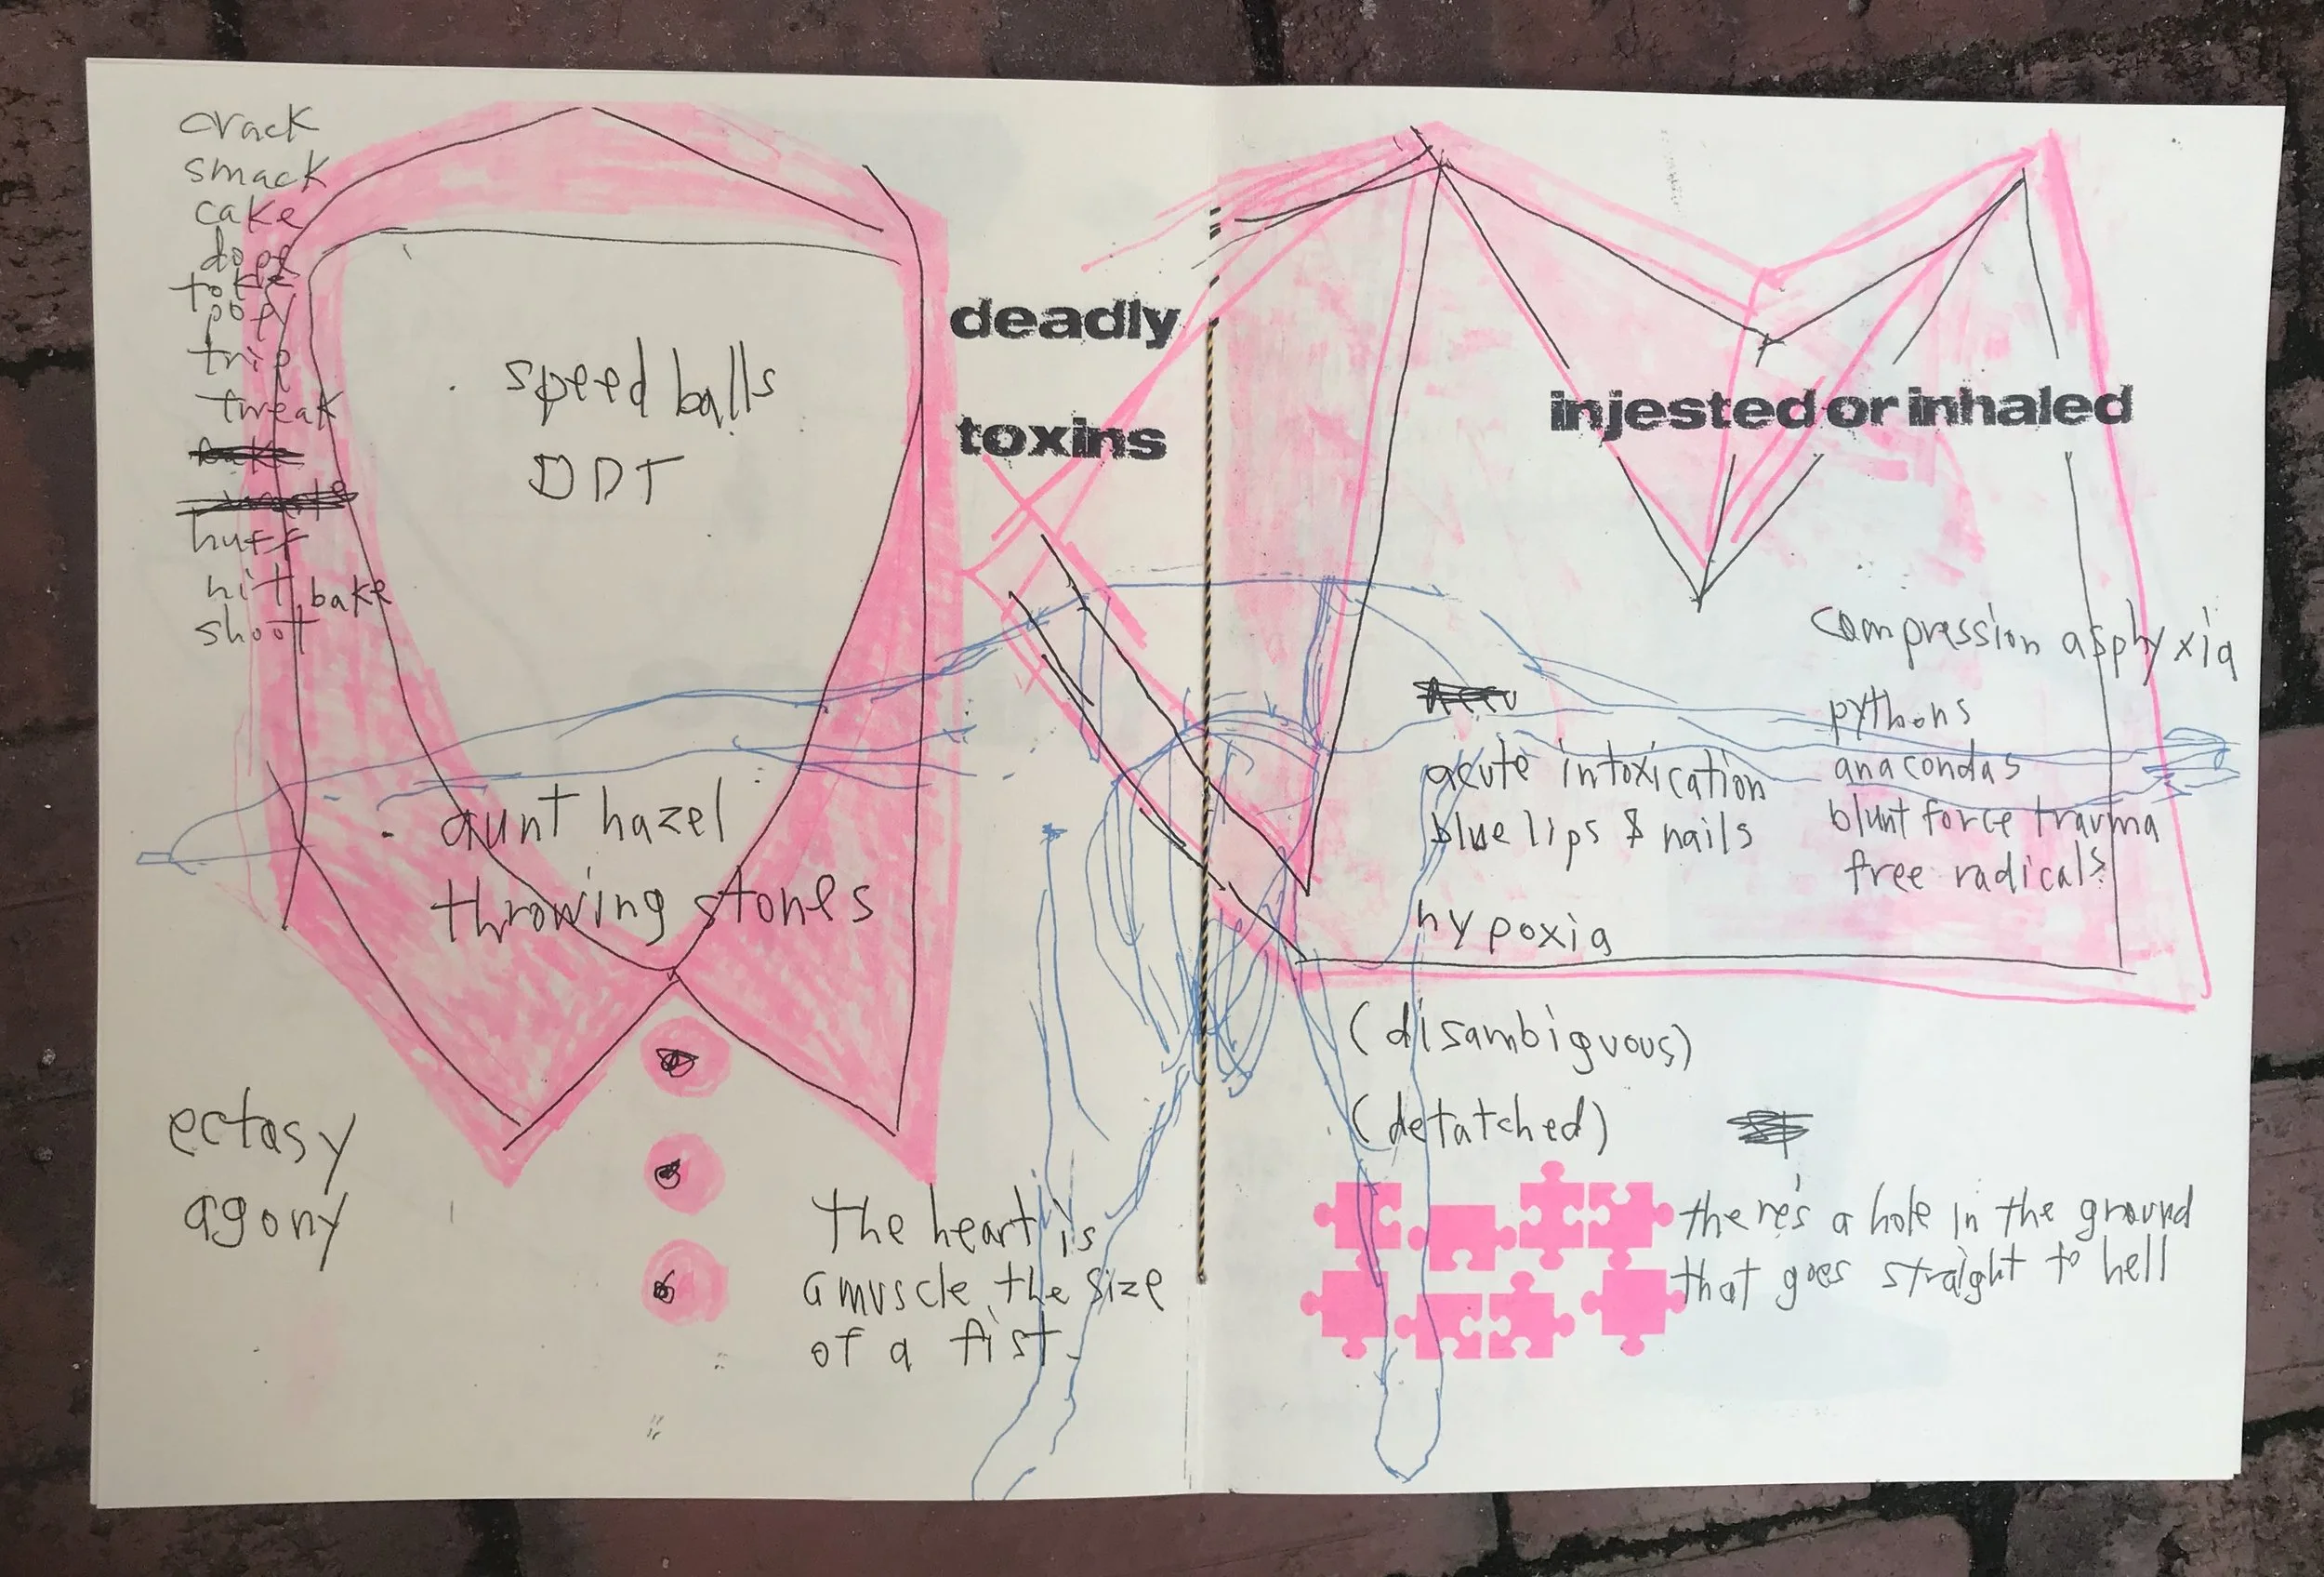 crack
smack
cake
dope
toke
popy
trip
tweak
huff
hit, bake
shoot
speed balls
DDT
aunt hazel
throwing stones
ectasy
agony
the heart is
a muscle the size
of a fist.
deadly
toxins
injested or inhaled
compression asphyxia
pythons
anacondas
blunt force trauma
free radicals
acute intoxication
blue lips & nails
hypoxia
(disambiguous)
(detatched)
there's a hole in the ground
that goes straight to hell